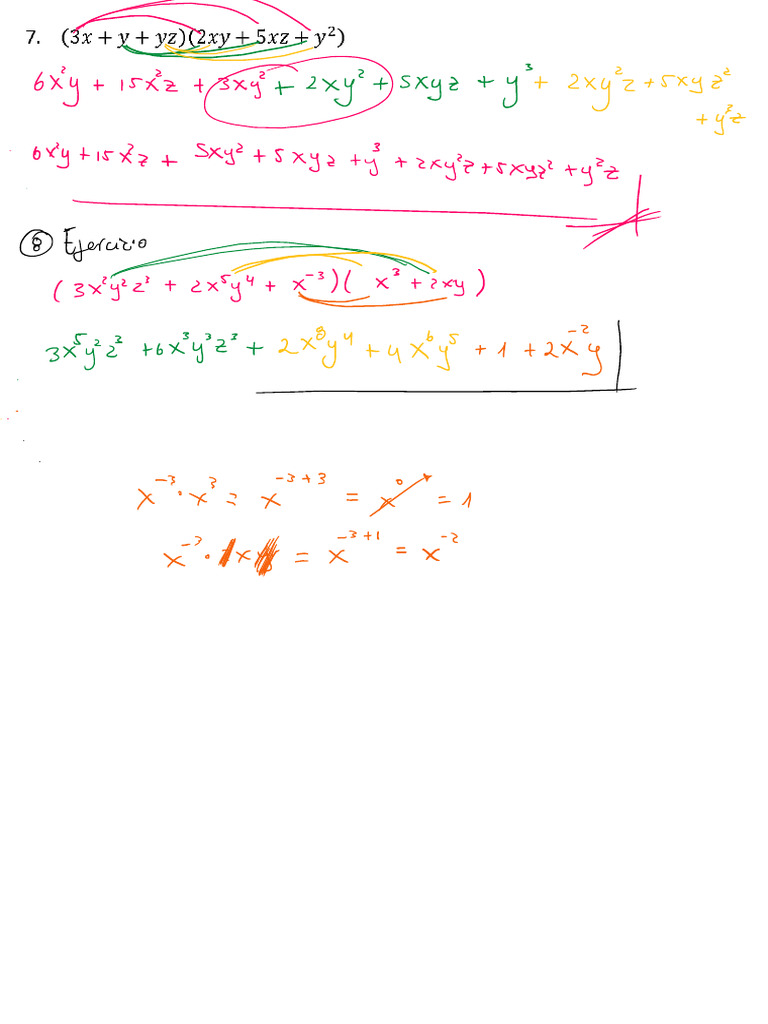 7. (3x + y + yz)(2xy + 5xz + y²)
6x²y + 15x²z + 3xy² + 2xy² + 5xyz + y³ + 2xy²z + 5xyz²
+ y³z
6x²y + 15x²z + 5xy² + 5xyz + y³ + 2xy²z + 5xyz² + y²z
⑧ Ejercicio
(3x²y²z³ + 2x⁵y⁴ + x⁻³)(x³ + 2xy)
3x⁵y²z³ + 6x³y³z³ + 2x⁸y⁴ + 4x⁶y⁵ + 1 + 2x⁻²y
x⁻³·x³ = x⁻³⁺³ = x⁰ = 1
x⁻³·x = x⁻³⁺¹ = x⁻²